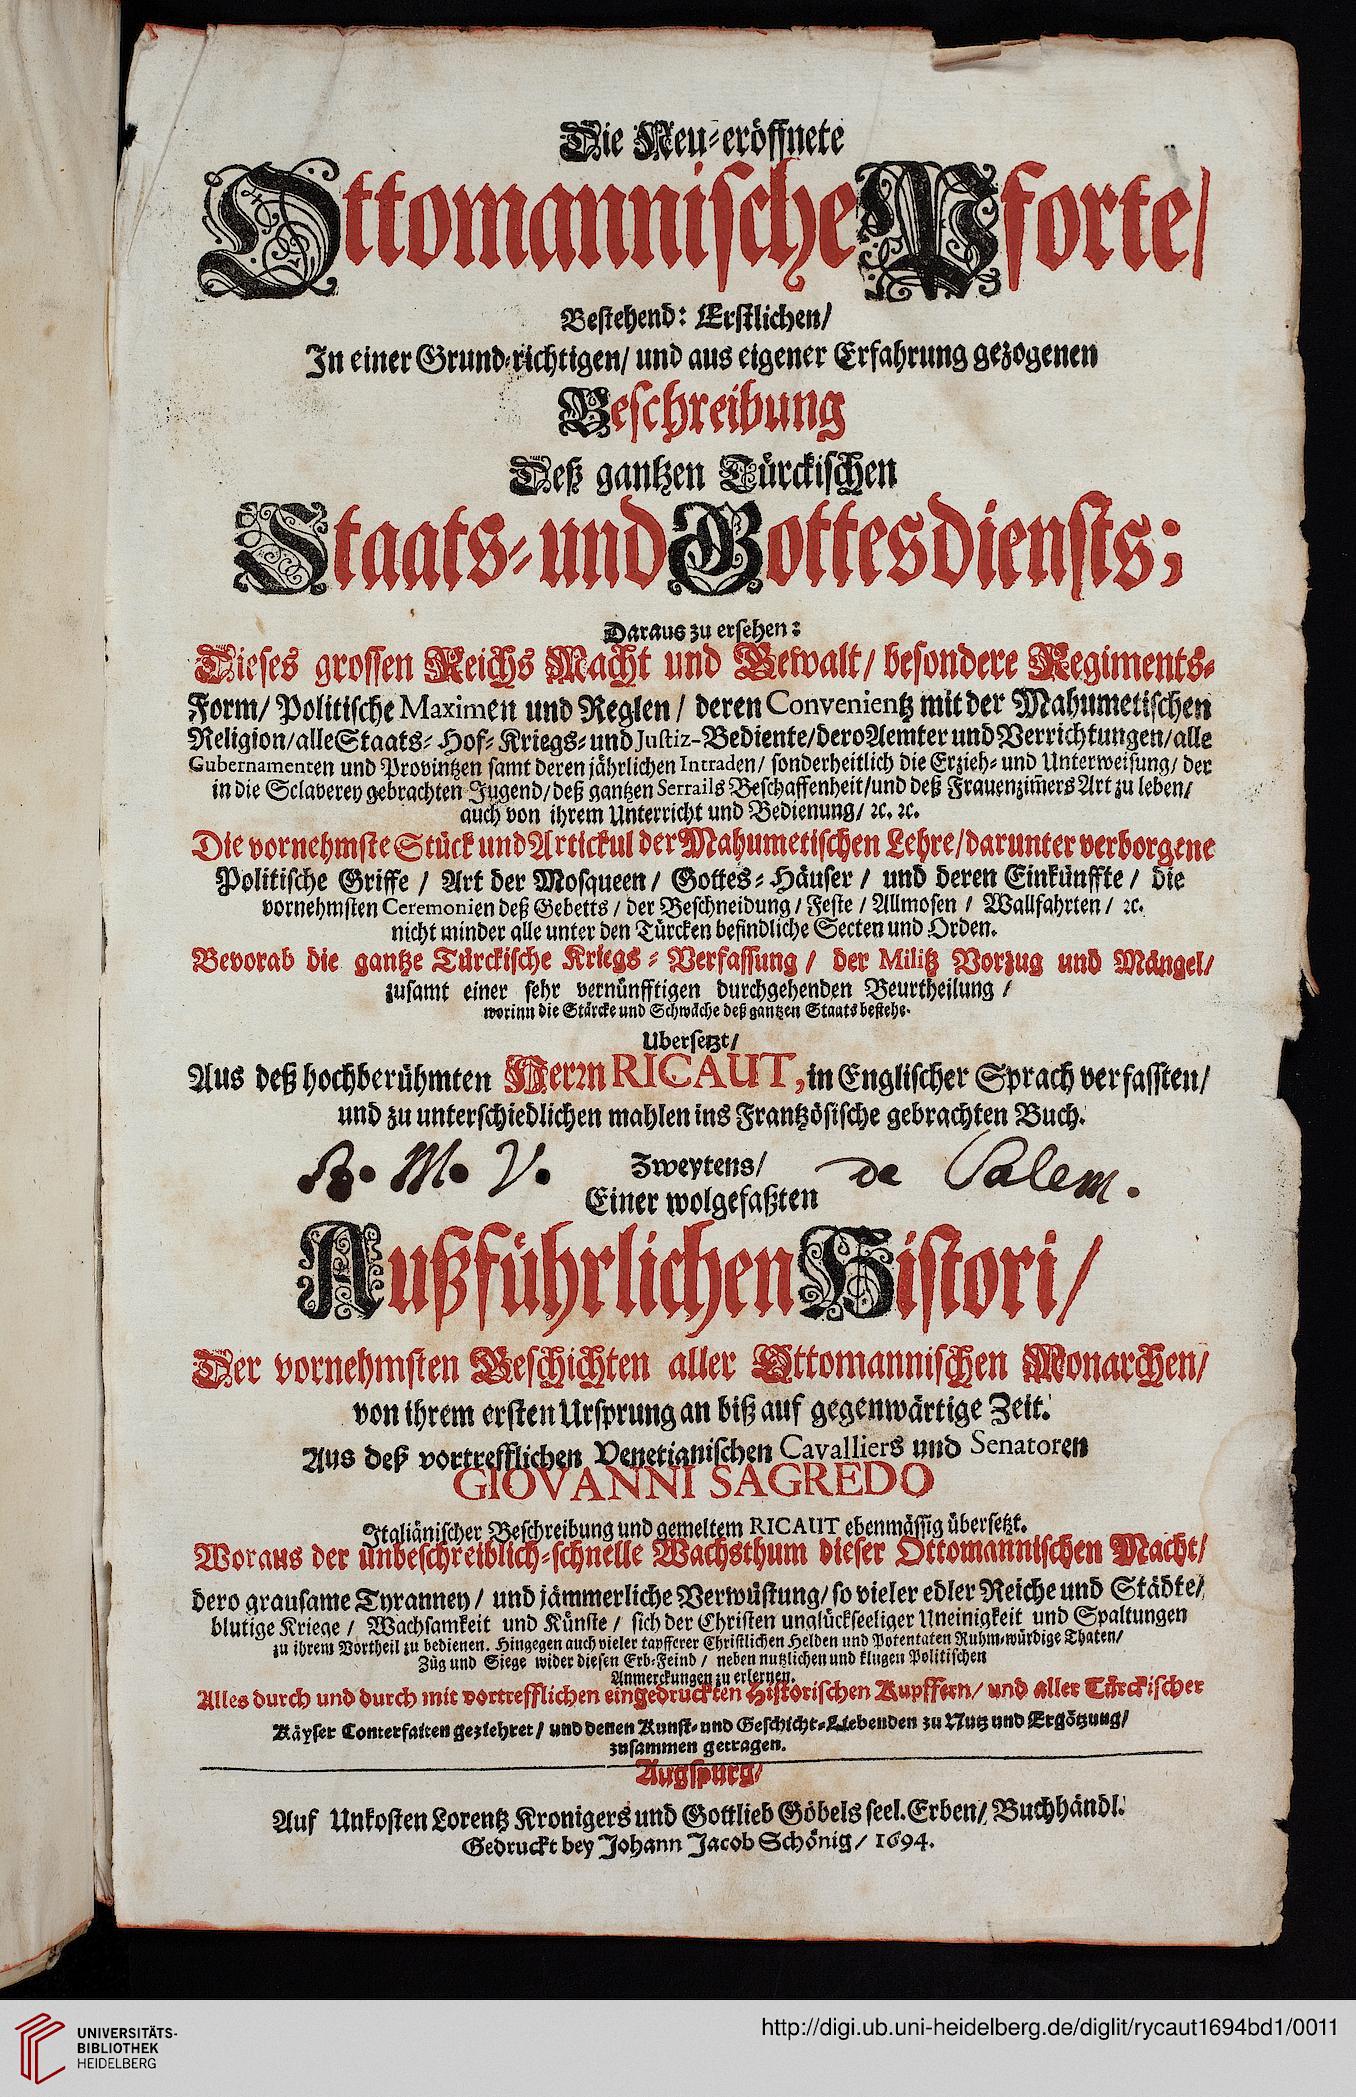 Die Neu-eröffnete
Ottomannische Pforte/
Bestehend: Erstlichen/
In einer Grund-richtigen/ und aus eigener Erfahrung gezogenen
Beschreibung
Deß gantzen Türckischen
Staats- und Gottesdiensts;
Daraus zu ersehen:
Dieses grossen Reichs Macht und Gewalt/ besondere Regiments-
Form/ Politische Maximen und Reglen/ deren Convenientz mit der Mahumetischen
Religion/ alle Staats- Hof- Kriegs- und Justiz-Bediente/ dero Aemter und Verrichtungen/ alle
Gubernamenten und Provintzen samt deren jährlichen Intraden/ sonderheitlich die Erzieh- und Unterweisung/ der
in die Sclaverey gebrachten Jugend/ deß gantzen Serrails Beschaffenheit/ und deß Frauenzim̃ers Art zu leben/
auch von ihrem Unterricht und Bedienung/ ꝛc. ꝛc.
Die vornehmste Stück und Artickul der Mahumetischen Lehre/ darunter verborgene
Politische Griffe / Art der Mosqueen/ Gottes-Häuser / und deren Einkünffte/ die
vornehmsten Ceremonien deß Gebetts / der Beschneidung/ Feste / Allmosen / Wallfahrten/ ꝛc.
nicht minder alle unter den Türcken befindliche Secten und Orden.
Bevorab die gantze Türckische Kriegs-Verfassung / der Militz Vorzug und Mängel/
zusamt einer sehr vernünfftigen durchgehenden Beurtheilung /
worinn die Stärcke und Schwäche deß gantzen Staats bestehe.
Ubersetzt/
Aus deß hochberühmten Herrn RICAUT, in Englischer Sprach verfassten/
und zu unterschiedlichen mahlen ins Frantzösische gebrachten Buch.
B. M. V. Zweytens/ de Salem.
Einer wolgefaßten
Außführlichen Histori/
Der vornehmsten Geschichten aller Ottomannischen Monarchen/
von ihrem ersten Ursprung an biß auf gegenwärtige Zeit.
Aus deß vortrefflichen Venetianischen Cavalliers und Senatoren
GIOVANNI SAGREDO
Italiänischer Beschreibung und gemeltem RICAUT ebenmässig übersetzt.
Woraus der unbeschreiblich-schnelle Wachsthum dieser Ottomannischen Macht/
dero grausame Tyranney/ und jämmerliche Verwüstung/ so vieler edler Reiche und Städte/
blutige Kriege / Wachsamkeit und Künste / sich der Christen unglückseeliger Uneinigkeit und Spaltungen
zu ihrem Vortheil zu bedienen. Hingegen auch vieler tapfferer Christlichen Helden und Potentaten Ruhm-würdige Thaten/
Züg und Siege wider diesen Erb-Feind / neben nutzlichen und klugen Politischen
Anmerckungen zu erlernen.
Alles durch und durch mit vortrefflichen eingedruckten Historischen Kupffern/ und aller Türckischer
Käyser Conterfaiten geziehret/ und denen Kunst- und Geschicht-Liebenden zu Nutz und Ergötzung/
zusammen getragen.
Augspurg/
Auf Unkosten Lorentz Kronigers und Gottlieb Göbels seel. Erben/ Buchhändl.
Gedruckt bey Johann Jacob Schönig/ 1694.
UNIVERSITÄTS-
BIBLIOTHEK
HEIDELBERG
http://digi.ub.uni-heidelberg.de/diglit/rycaut1694bd1/0011